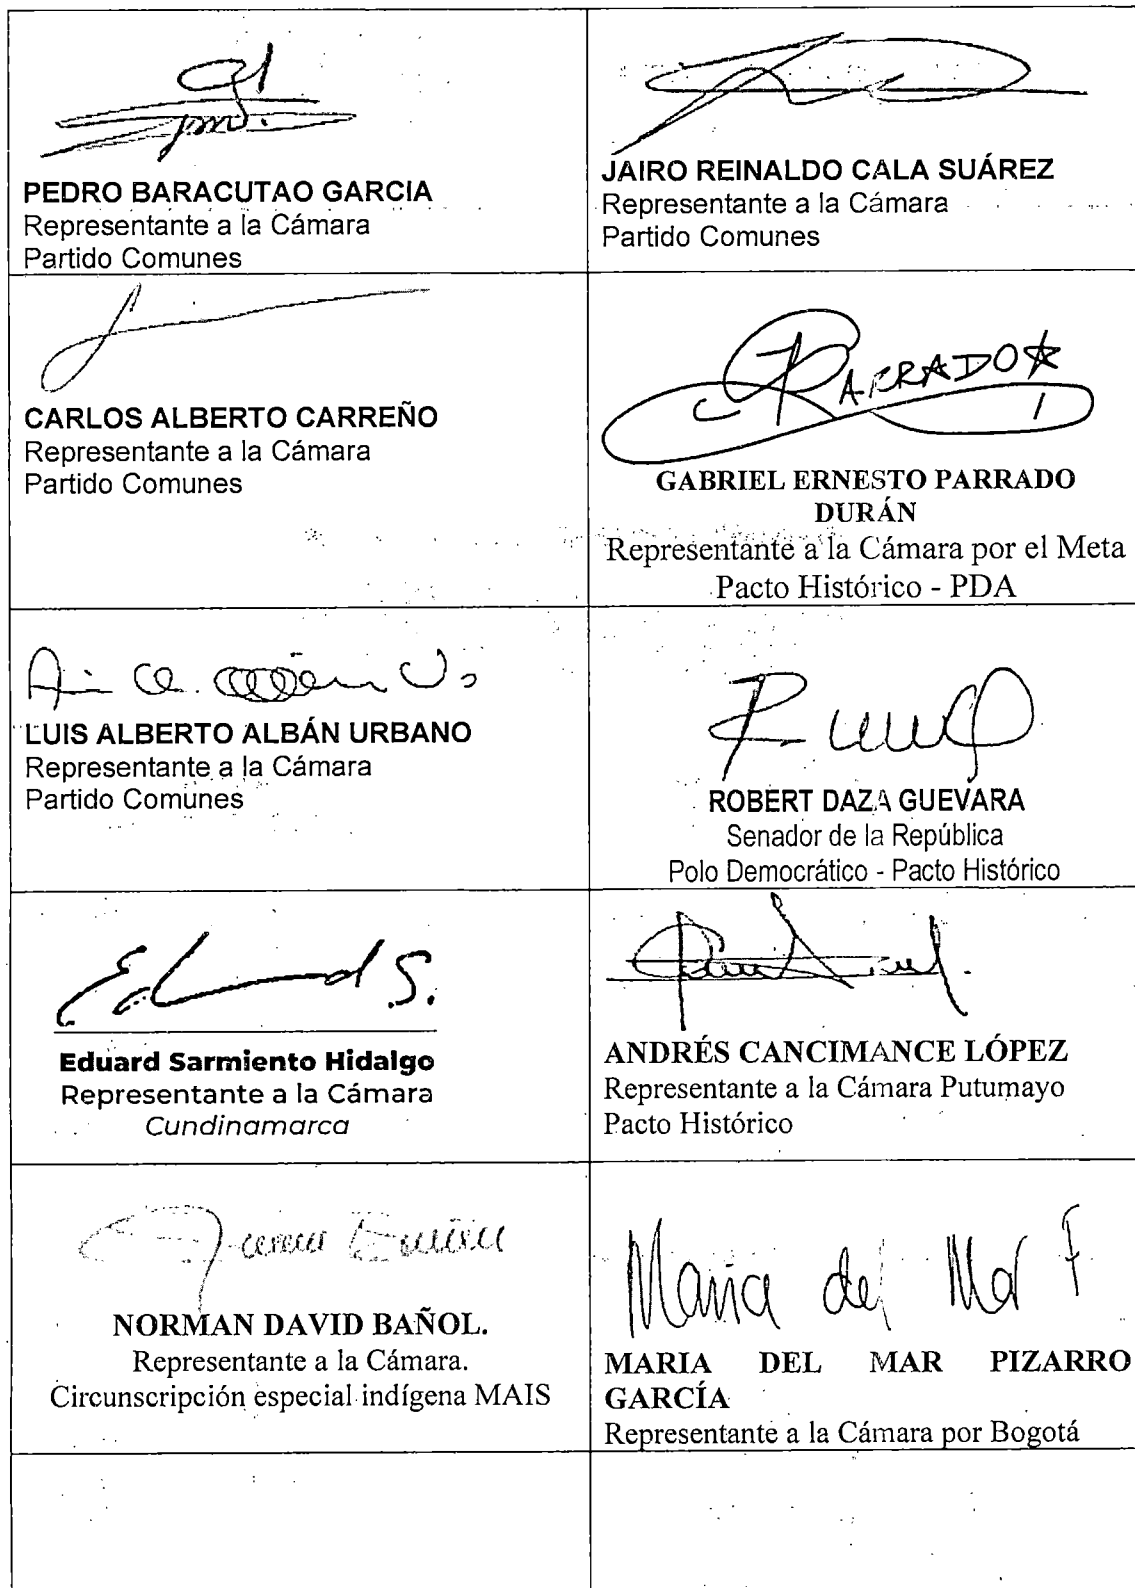 PEDRO BARACUTAO GARCIA
Representante a la Cámara
Partido Comunes
JAIRO REINALDO CALA SUÁREZ
Representante a la Cámara
Partido Comunes
CARLOS ALBERTO CARREÑO
Representante a la Cámara
Partido Comunes
PARRADO
GABRIEL ERNESTO PARRADO
DURÁN
Representante a la Cámara por el Meta
Pacto Histórico - PDA
LUIS ALBERTO ALBÁN URBANO
Representante a la Cámara
Partido Comunes
ROBERT DAZA GUEVARA
Senador de la República
Polo Democrático - Pacto Histórico
Eduard S.
Eduard Sarmiento Hidalgo
Representante a la Cámara
Cundinamarca
ANDRÉS CANCIMANCE LÓPEZ
Representante a la Cámara Putumayo
Pacto Histórico
NORMAN DAVID BAÑOL.
Representante a la Cámara.
Circunscripción especial indígena MAIS
Maria del Mar P
MARIA DEL MAR PIZARRO
GARCÍA
Representante a la Cámara por Bogotá